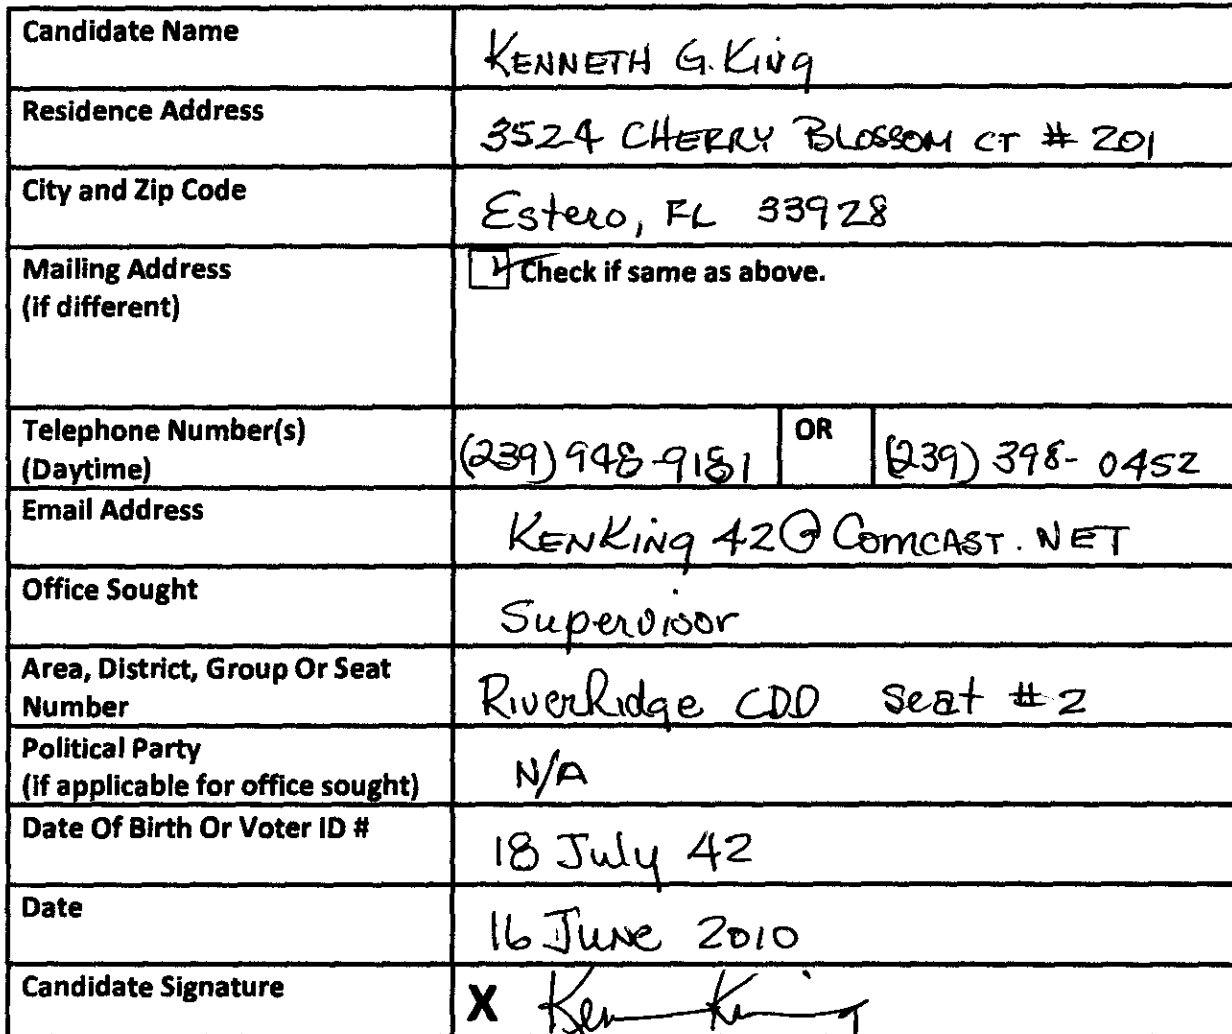 Candidate Name
KENNETH G. King
Residence Address
3524 CHERRY BLOSSOM CT # 201
City and Zip Code
Estero, FL 33928
Mailing Address
(if different)
Check if same as above.
Telephone Number(s)
(Daytime)
(239) 948-9181 OR (239) 398-0452
Email Address
KENKING 42@ COMCAST.NET
Office Sought
Supervisor
Area, District, Group Or Seat
Number
RiverRidge CDD Seat # 2
Political Party
(if applicable for office sought)
N/A
Date Of Birth Or Voter ID #
18 July 42
Date
16 June 2010
Candidate Signature
X Ken King